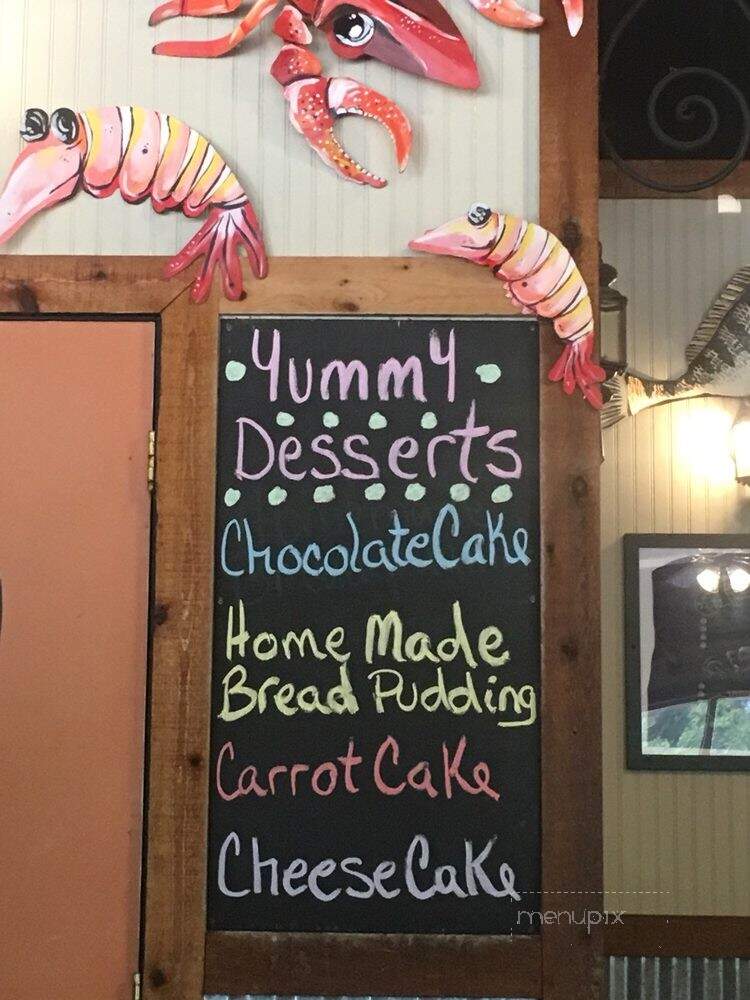 Yummy
Desserts
Chocolate Cake
Home Made
Bread Pudding
Carrot Cake
Cheese Cake
menupix